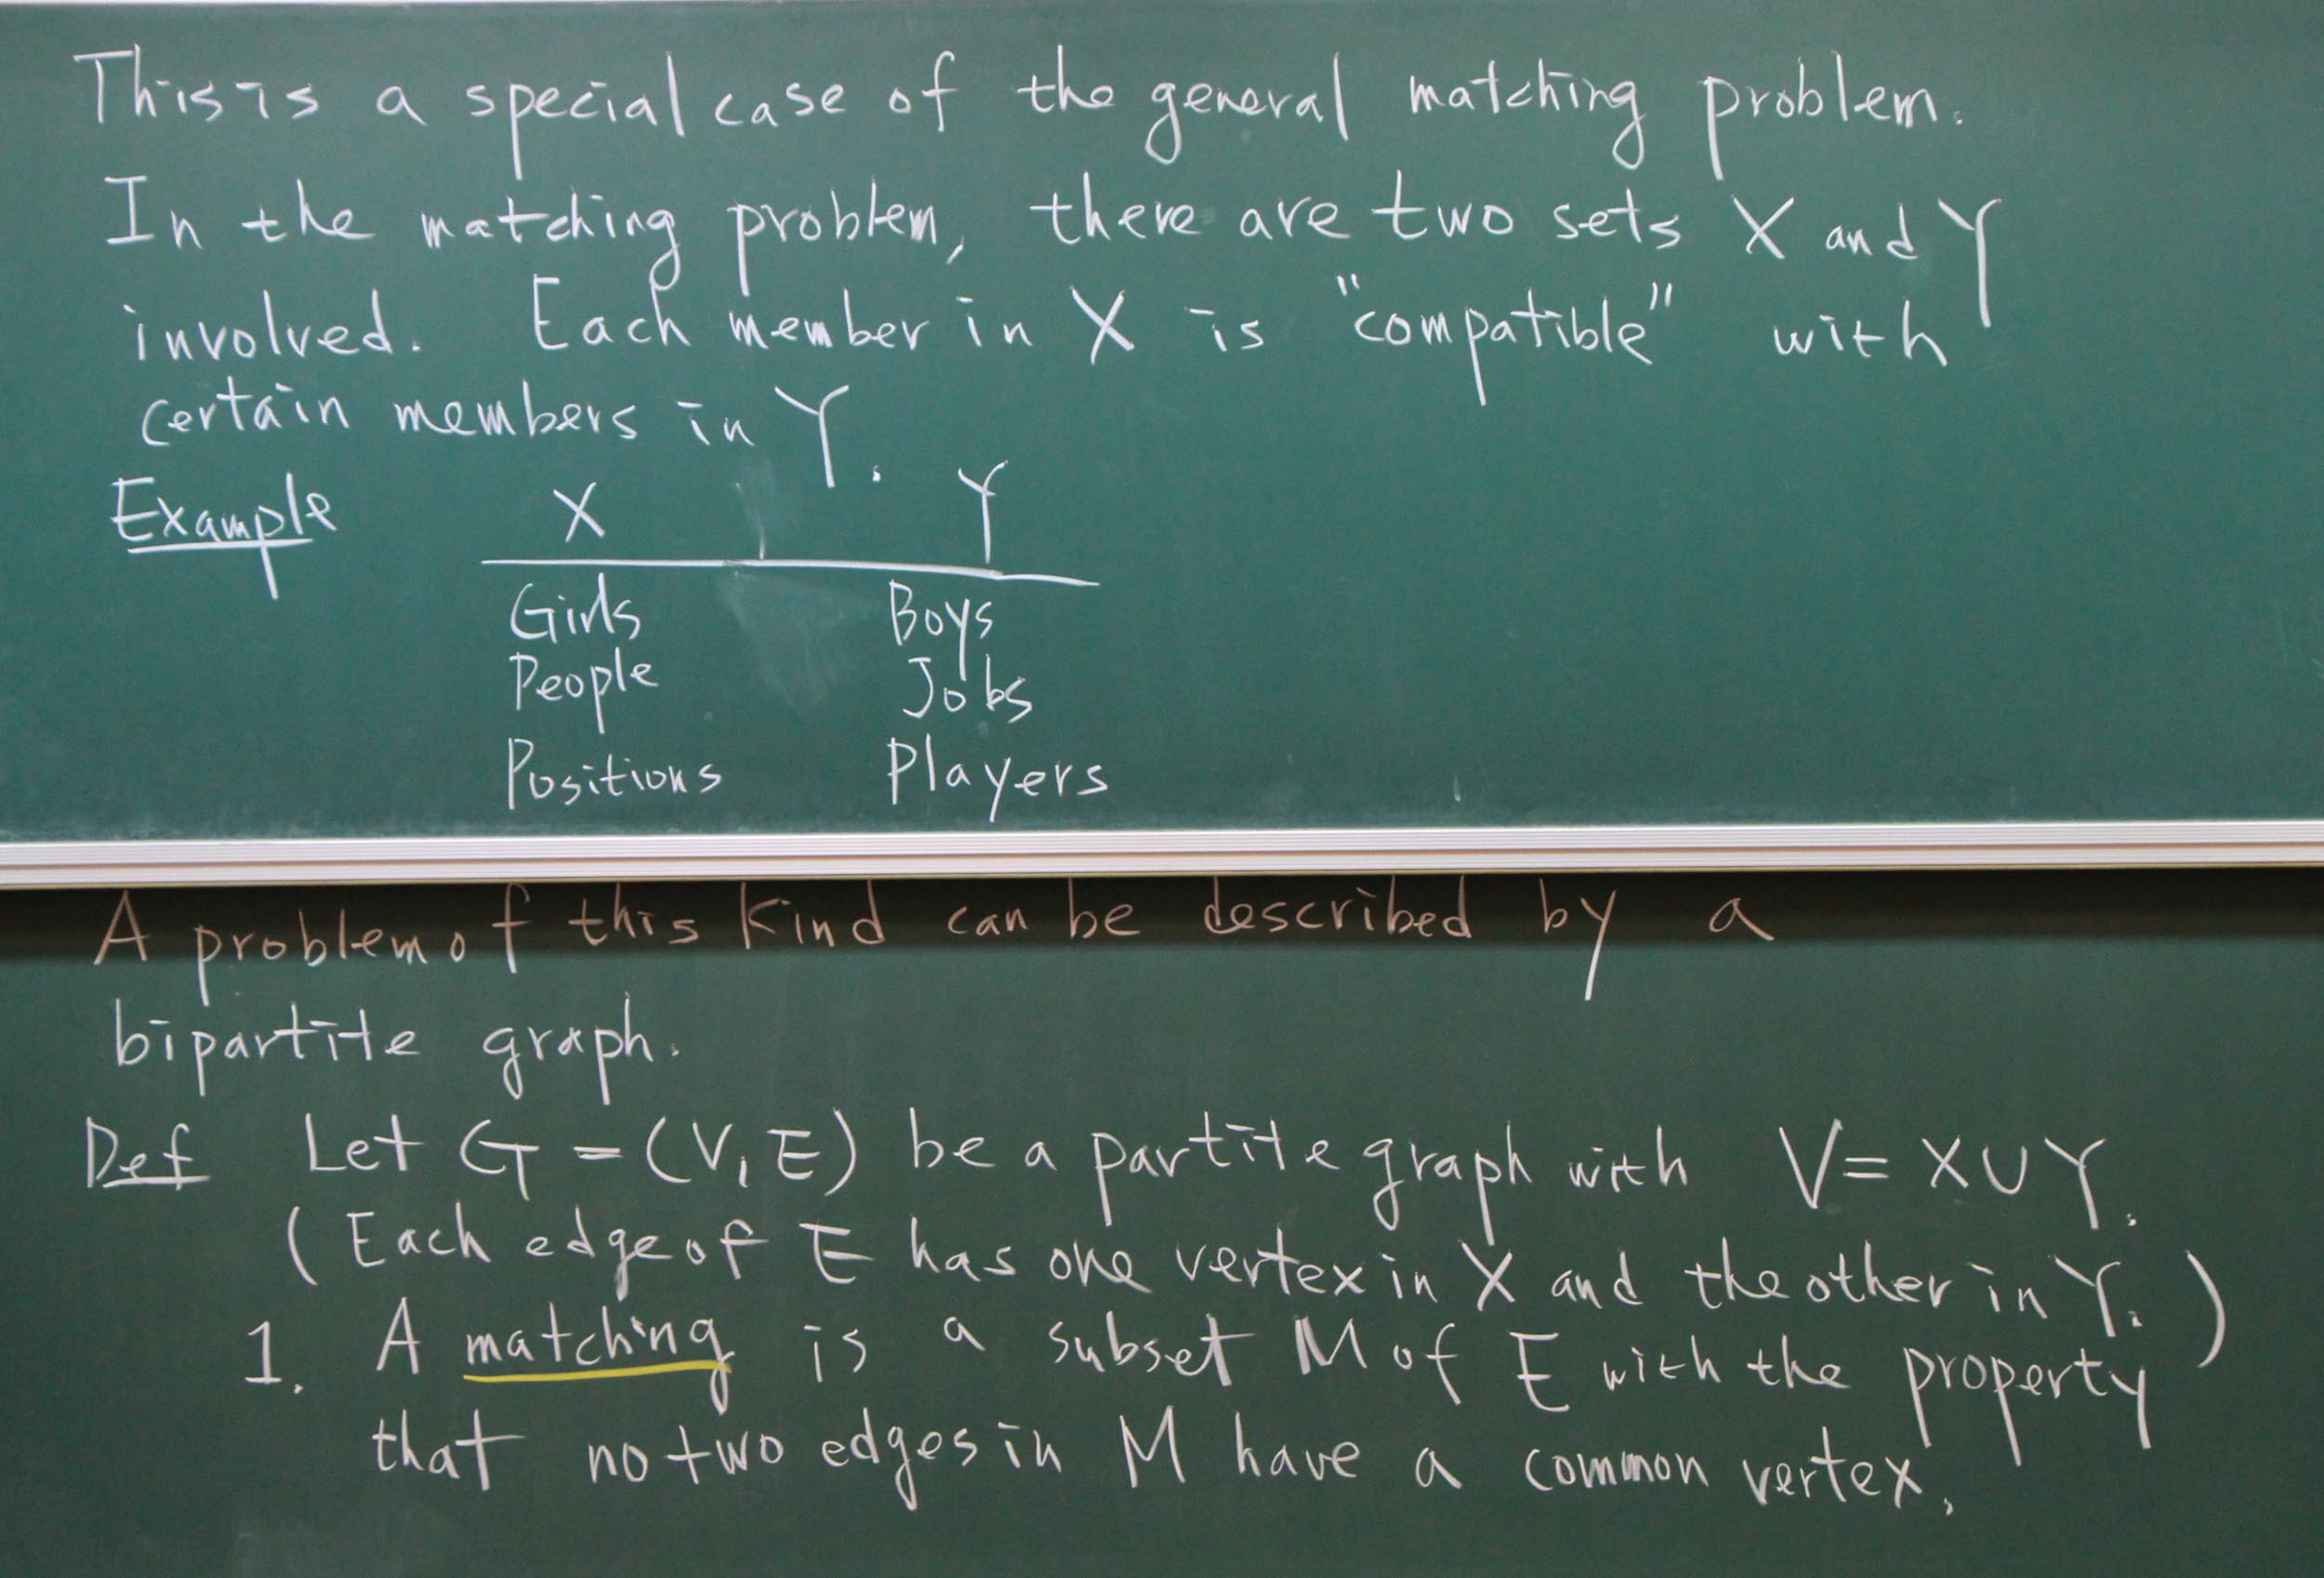 This is a special case of the general matching problem.
In the matching problem, there are two sets X and Y
involved. Each member in X is "compatible" with
certain members in Y.
Example X Y
Girls Boys
People Jobs
Positions Players
A problem of this kind can be described by a
bipartite graph.
Def Let G = (V, E) be a partite graph with V = X ∪ Y.
(Each edge of E has one vertex in X and the other in Y.)
1. A matching is a subset M of E with the property
that no two edges in M have a common vertex.